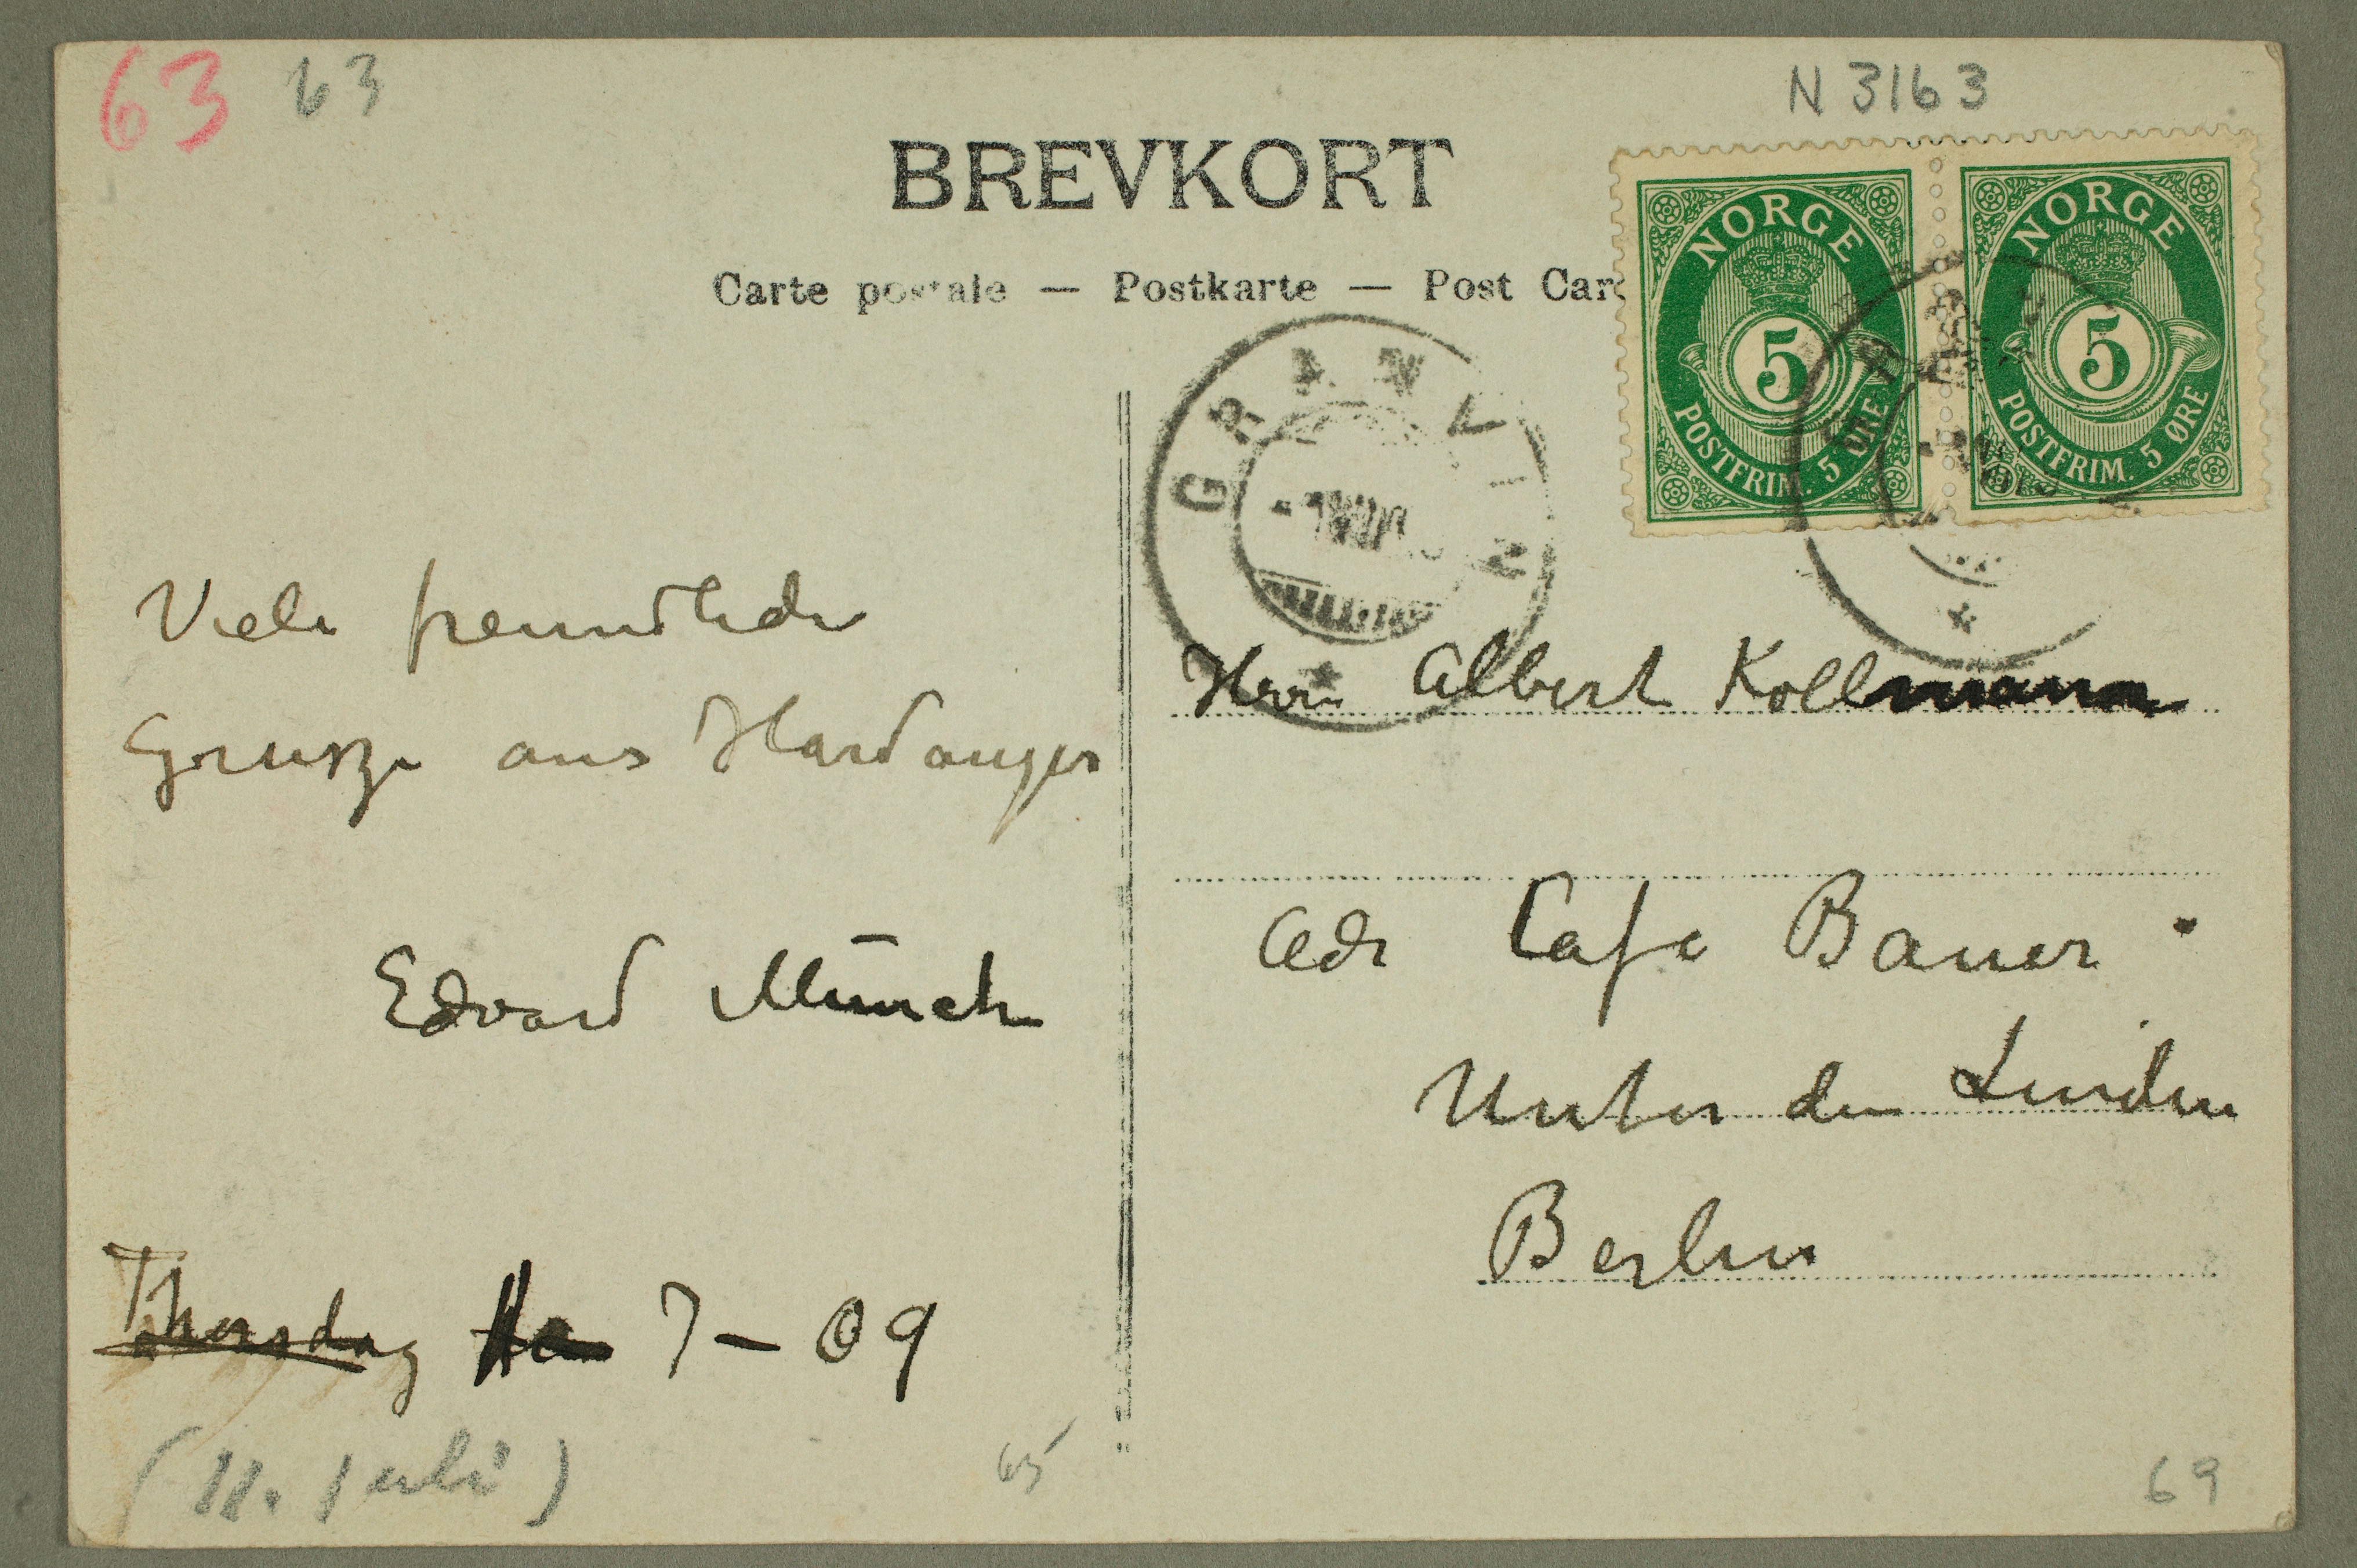 63 63
N 3163
BREVKORT
Carte postale — Postkarte — Post Car
NORGE
5
POSTFRIM. 5 ØRE
NORGE
5
POSTFRIM. 5 ØRE
GRANVIN
Viele freundliche
Grusze aus Hardanger
Edvard Munch
Thorsdag 7 – 09
65
Herrn Albert Kollmann
Adr Cafe Bauer
Unter den Linden
Berlin
69